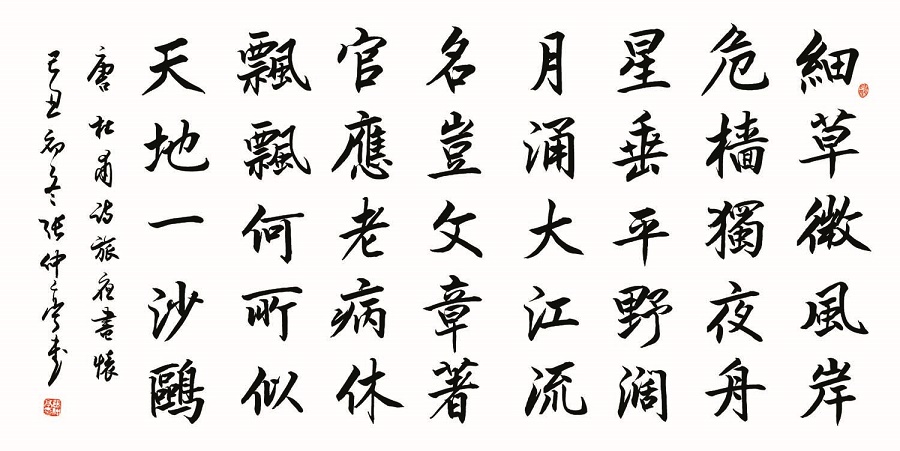 細草微風岸
危檣獨夜舟
星垂平野濶
月涌大江流
名豈文章著
官應老病休
飄飄何所似
天地一沙鷗
唐杜甫詩旅夜書懷
己丑初冬張仲亭書